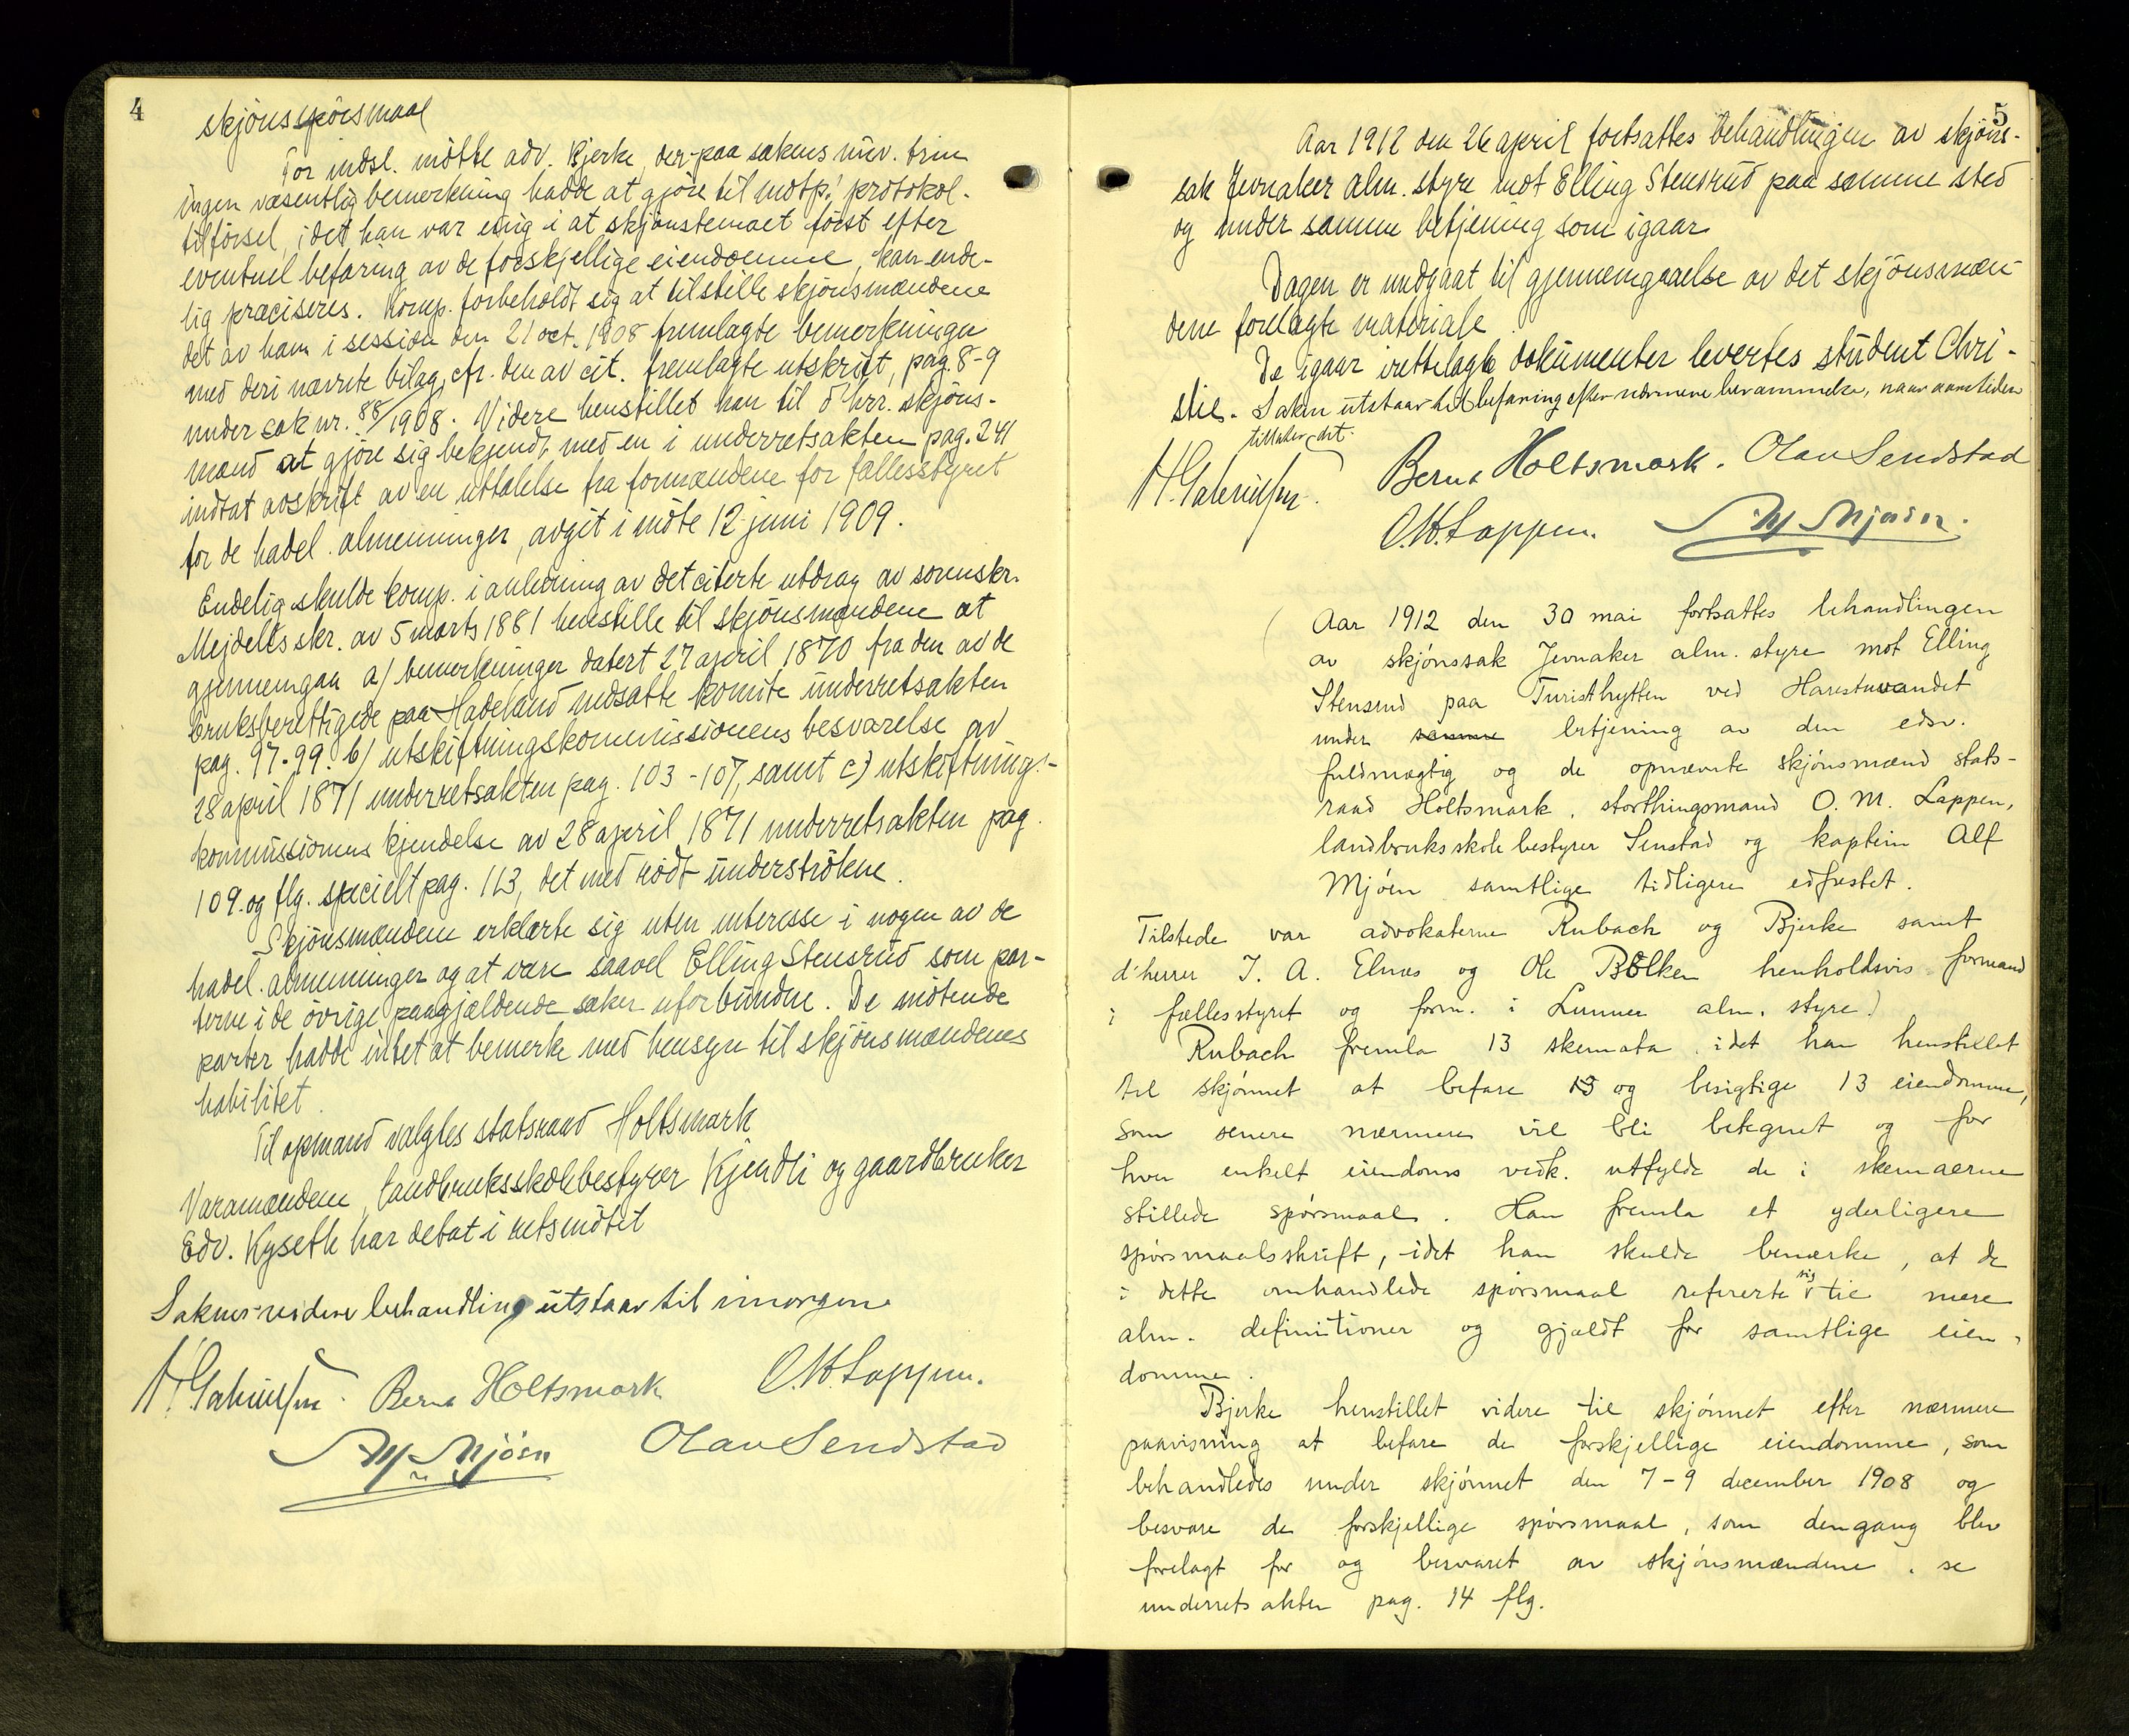 4
skjönsspörsmaal
For indst. mötte adv. Bjerke, der paa sakens nuv. trin
ingen væsentlig bemerkning hadde at gjöre til motp! protokol-
tilförsel, idet han var enig i at skjönstemaet först efter
eventuel befaring av de forskjellige eiendomme, kan ende-
lig præciseres. Komp. forbeholdt sig at tilstille skjönsmændene
det av ham i session den 21 oct. 1908 fremlagte bemerkninger
med deri nævnte bilag, cfr. den av cit. fremlagte utskrift, pag. 8-9
under sak nr. 88/1908. Videre henstillet han til d'hrr. skjöns-
mænd at gjöre sig bekjendt med en i underretsakten pag. 241
indtat avskrift av en uttalelse fra formændene for fællesstyret
for de hadel. almenninger, avgit i möte 12 juni 1909.
Endelig skulde komp. i anledning av det citerte utdrag av sorenskr.
Mejdells skr. av 5 marts 1881 henstille til skjönsmændene at
gjennemgaa a/ bemerkninger datert 27 april 1870 fra den av de
bruksberettigede paa Hadeland nedsatte komite underretsakten
pag. 97-99. b/ utskiftningskommissionens besvarelse av
28 april 1871 underretsakten pag. 103-107, samt c) utskiftnings-
kommissionens kjendelse av 28 april 1871 underretsakten pag.
109. og flg. specielt pag. 113, det med rödt underströkne.
Skjönsmændene erklærte sig uten interesse i nogen av de
hadel. almenninger og at være saavel Elling Stensrud som par-
terne i de övrige paagjældende saker uforbundne. De mötende
parter hadde intet at bemerke med hensyn til skjönsmændenes
habilitet.
Til opmand valgtes statsraad Holtsmark
Varamændene, landbruksskolebestyrer Kjendli og gaardbruker
Edv. Kyseth har deltat i retsmötet
Sakens videre behandling utstaar til imorgen
Bernt Holtsmark
O. M. Lappen.
Alf Mjöen
Olav Sendstad
5
Aar 1912 den 26 april fortsattes behandlingen av skjöns-
sak Jevnaker alm. styre mot Elling Stensrud paa samme sted
og under samme betjening som igaar.
Dagen er medgaat til gjennemgaaelse av det skjönsmæn-
dene forelagte materiale.
De igaar irettelagte dokumenter levertes student Chri-
stie. Saken utstaar til befaring efter nærmere berammelse, naar aarstiden
tillater det.
Bernt Holtsmark. Olav Sendstad
O. M. Lappen. Alf Mjöen.
Aar 1912 den 30 mai fortsattes behandlingen
av skjönssak Jevnaker alm. styre mot Elling
Stensrud paa Turisthytten ved Harestuvandet
under samme betjening av den edsv.
fuldmægtig og de opnævnte skjönsmænd stats-
raad Holtsmark, storthingsmand O. M. Lappen,
landbruksskolebestyrer Senstad og kaptein Alf
Mjöen samtlige tidligere edfæstet.
Tilstede var advokaterne Rubach og Bjerke samt
d'herrer J. A. Elnæs og Ole Bölken henholdsvis formand
i fællesstyret og form. i Lunner alm. styre.)
Rubach fremla 13 skemata, idet han henstillet
til skjönnet at befare 13 og besigtige 13 eiendomme,
som senere nærmere vil bli betegnet og for
hver enkelt eiendoms vedk. utfylde de i skemaerne
stillede spörsmaal. Han fremla et yderligere
spörsmaalsskrift, idet han skulde bemerke, at de
i dette omhandlede spörsmaal refererte sig til mere
alm. definitioner og gjaldt for samtlige eien-
domme.
Bjerke henstillet videre til skjönnet efter nærmere
paavisning at befare de forskjellige eiendomme, som
behandledes under skjönnet den 7-9 december 1908 og
besvare de forskjellige spörsmaal, som dengang blev
forelagt for og besvaret av skjönsmændene, se
underretsakten pag. 14 flg.